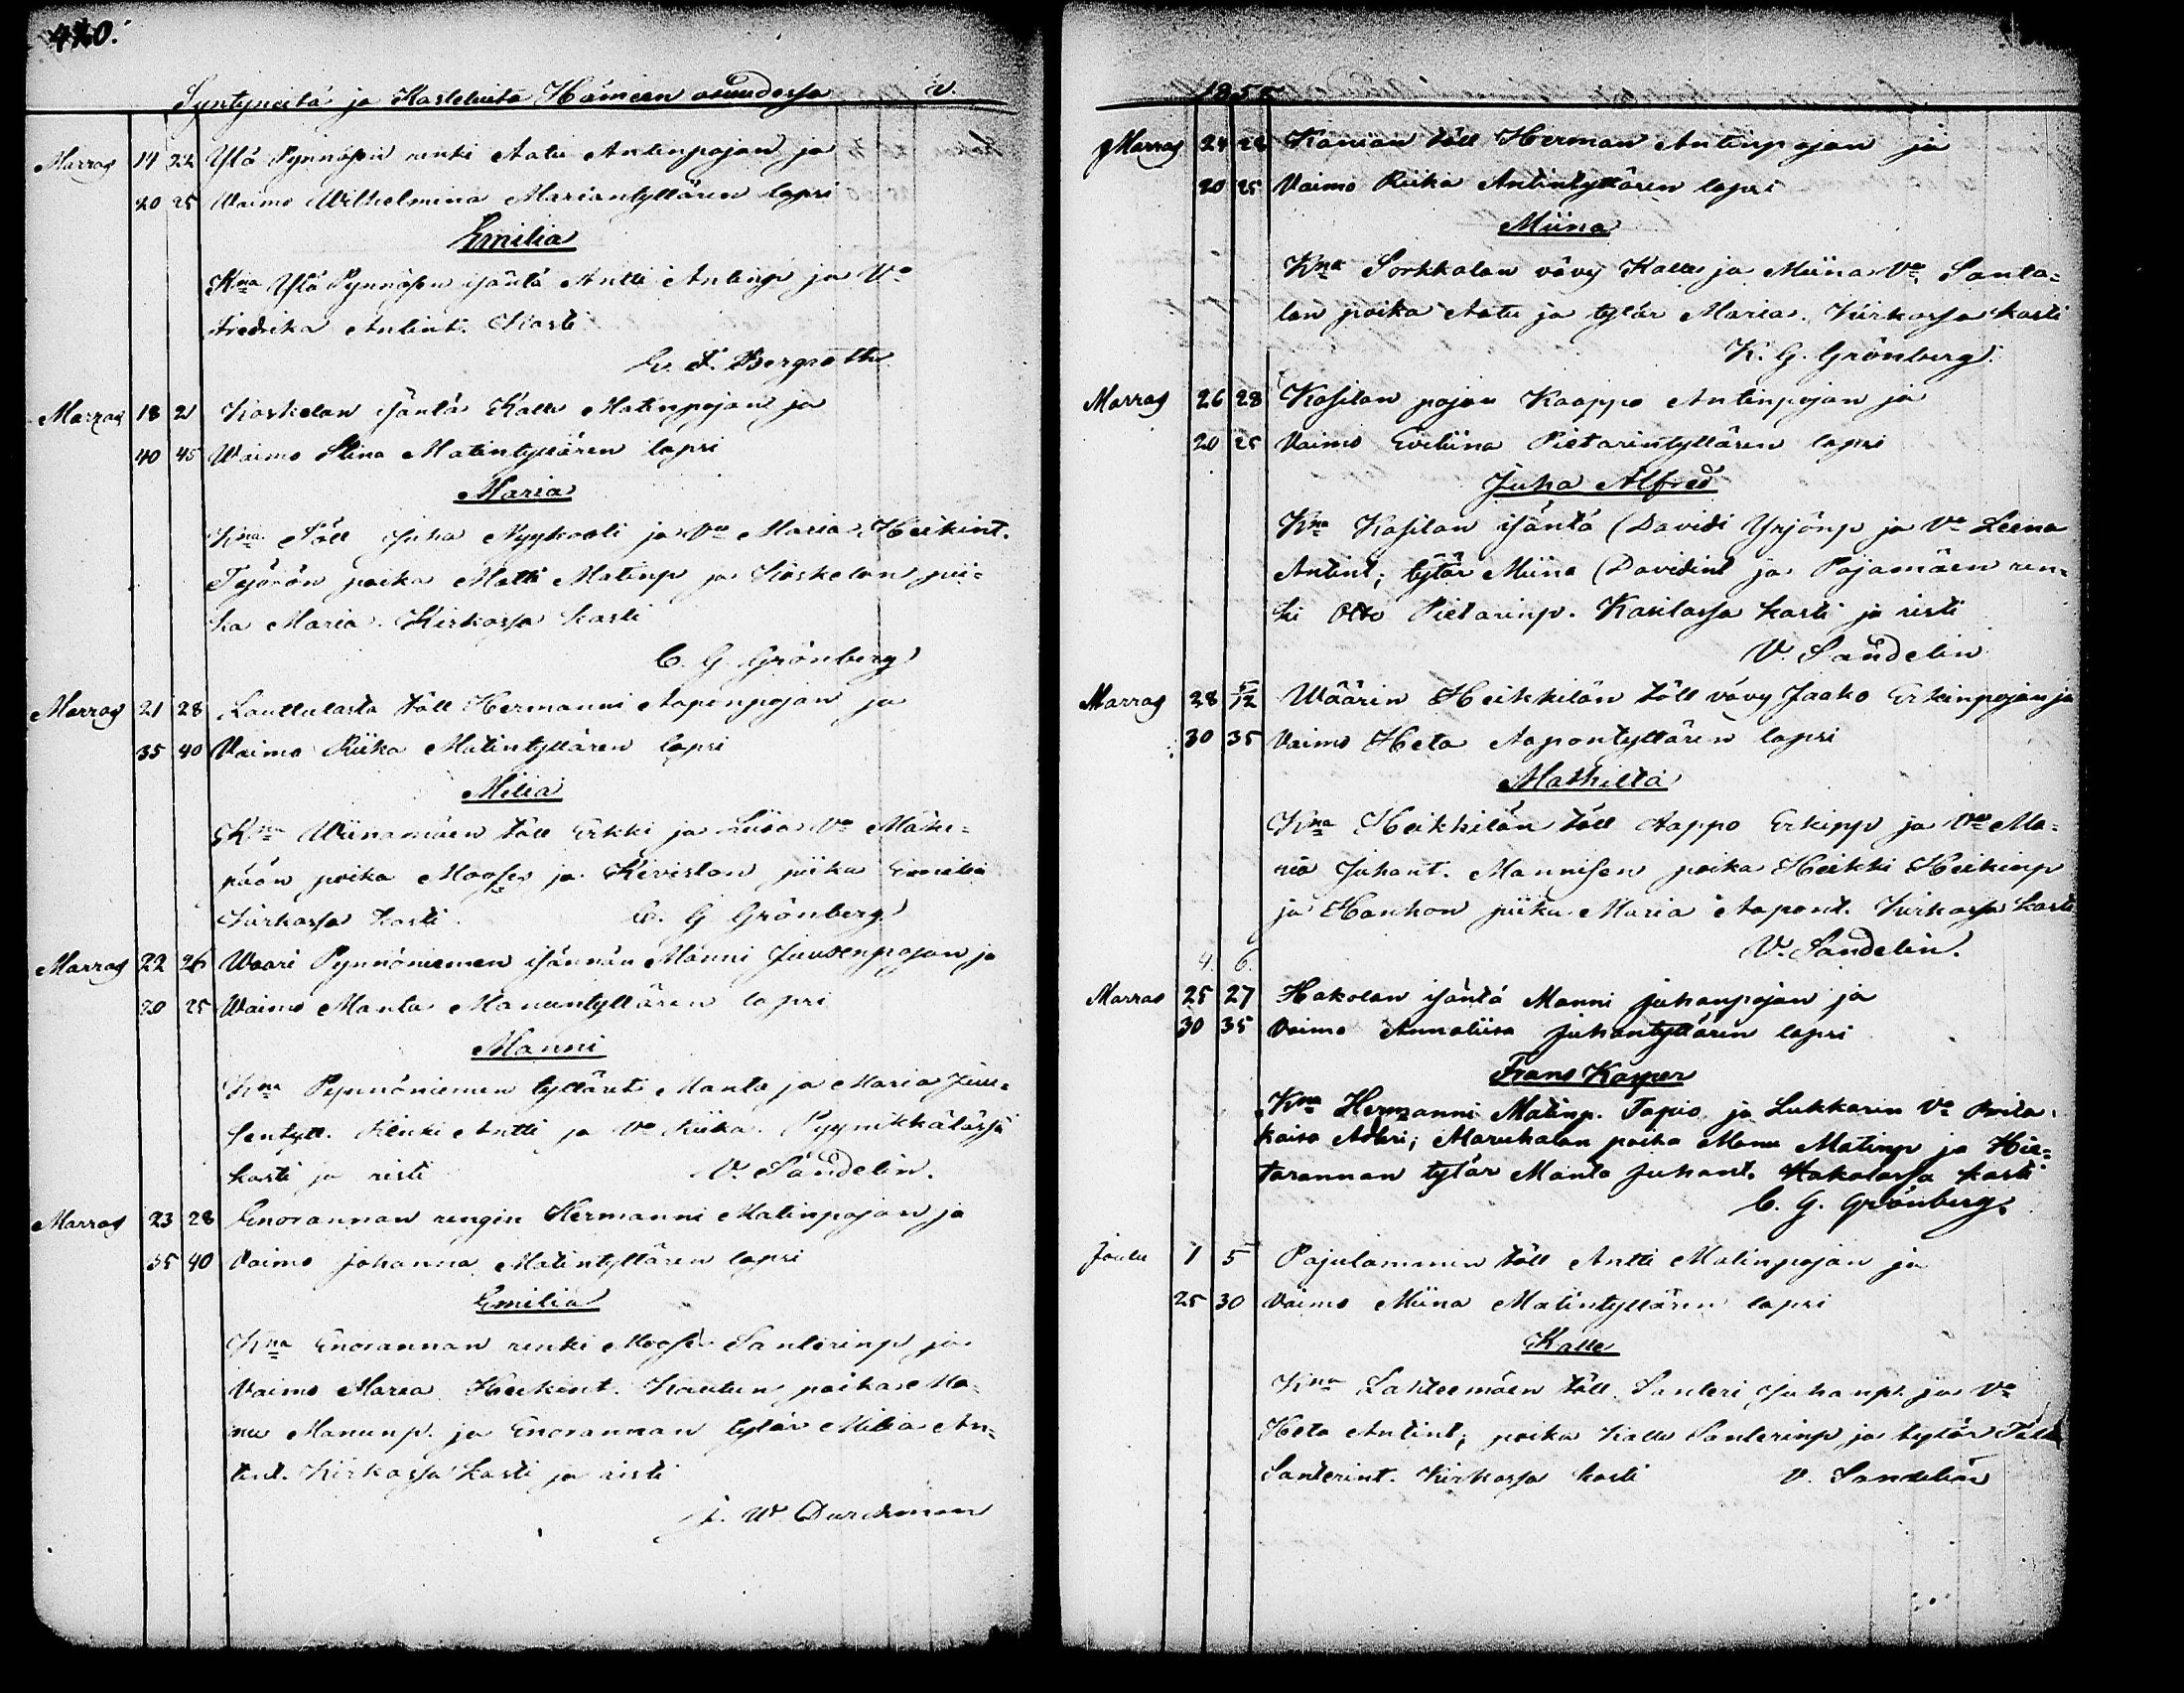 420.
Syntyneitä ja Kastetuita Hämeen osuudessa v.
Marras 14 22 Ylä Pynnösen renki Aatu Antinpojan ja
20 25 Waimo Wilhelmina Mariantyttären lapsi
Emilia
Kna Ylä Pynnösen isäntä Antti Antinp ja Vo
Fredrika Antint. Kasti
F. Bergroth
Marras 18 21 Koskelan isäntä Kalle Matinpojan ja
40 45 Waimo Stina Matintyttären lapsi
Maria
Kna Töll Juha Nygkooli ja Vo Maria Heikint.
poika Matti Matinp ja Koskelan pii-
ka Maria. Kirkossa kasti
C. G. Grönberg
Marras 21 28 Lauttulasta töll Hermanni Aapenpojan ja
35 40 Vaimo Riika Matintyttären lapsi
Milia
Kna Wiinamäen töll Erkki ja Liisa Vo Mäke-
pään poika Mooses ja Keviston piika Emilia
Kirkossa kasti C. G Grönberg
Marras 22 26 Waari Pynnöniemen isännän Manni Juusenpojan ja
20 25 Waimo Manta Manuntyttären lapsi
Manni
Kna Pynnöniemen tyttäret Manta ja Maria Juu-
sentytt. Renki Antti ja Vo Riika. Pyynikkälässä
kasti ja risti V. Sandelin.
Marras 23 28 Enorannan rengin Hermanni Matinpojan ja
35 40 Vaimo Johanna Matintyttären lapsi
Emilia
Kna Enorannan renki Moose Santerinp ja
Vaimo Maria Heikint. Kautun poika Ma-
nu Manunp. ja Enorannan tytär Milia An-
tint. Kirkossa kasti ja risti
J. W. Durchman
185
Marras 24 28 Kanian töll Herman Antinpojan ja
20 25 Vaimo Riika Antintyttären lapsi
Miina
Kna Sorkkalan vävy Kalle ja Miina Vo Santa-
lan poika Aatu ja tytär Maria. Kirkossa kasti
K. G. Grönberg.
Marras 26 28 Kasilan pojan Kaappo Antinpojan ja
20 25 Vaimo Eveliina Pietarintyttären lapsi
Juha Alfred
Kna Kasilan isäntä Davidi Yrjönp ja Vo Leena
Antint; tytär Miina Davidint ja Pajamäen ren-
ki Otto Pietarinp. Kasilassa kasti ja risti
V. Sandelin
Marras 28 5/12 Wäärin Heikkilän töll vävy Jaako Erkinpojan ja
30 35 Vaimo Heta Aapontyttären lapsi
Mathilta
Kna Heikkilän töll Aappo Erkinp ja Vo Ma-
ria Juhant. Mannisen poika Heikki Heikinp
ja Hanhon piika Maria Aapont. Kirkossa kasti
V. Sandelin.
4. 6.
Marras 25 27 Hakolan isäntä Manni Juhanpojan ja
30 35 Vaimo Annaliisa Juhantyttären lapsi
Frans Kasper
Kna Hermanni Matinp. Tapio ja Lukkarin Vo
kaisa Adleri; Maruhalan poika Manu Matinp ja Hie-
tarannan tytär Manta Juhant. Hakolassa kasti
C. G. Grönberg.
Joulu 1 5 Pajulammin töll Antti Matinpojan ja
25 30 Vaimo Miina Matintyttären lapsi
Kalle
Kna Lahteemäen töll Santeri Juhanp. ja Vo
Heta Antint; poika Kalle Santerinp ja tytär
Santerint. Kirkossa kasti V. Sandelin